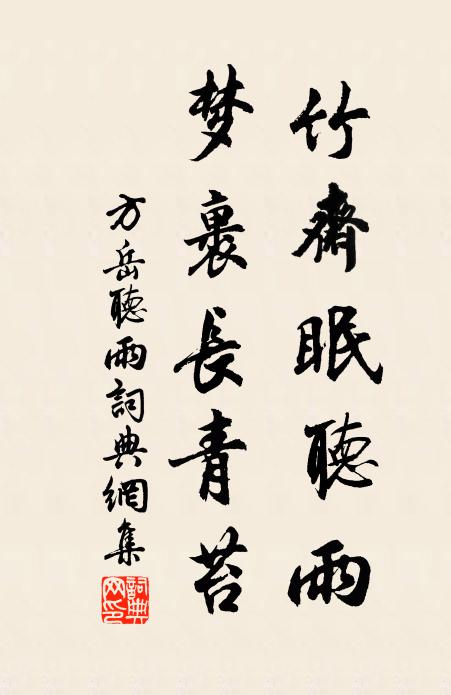 竹齋眠聽雨
梦裏長青苔
方岳聽雨詞典網集
詞典网印